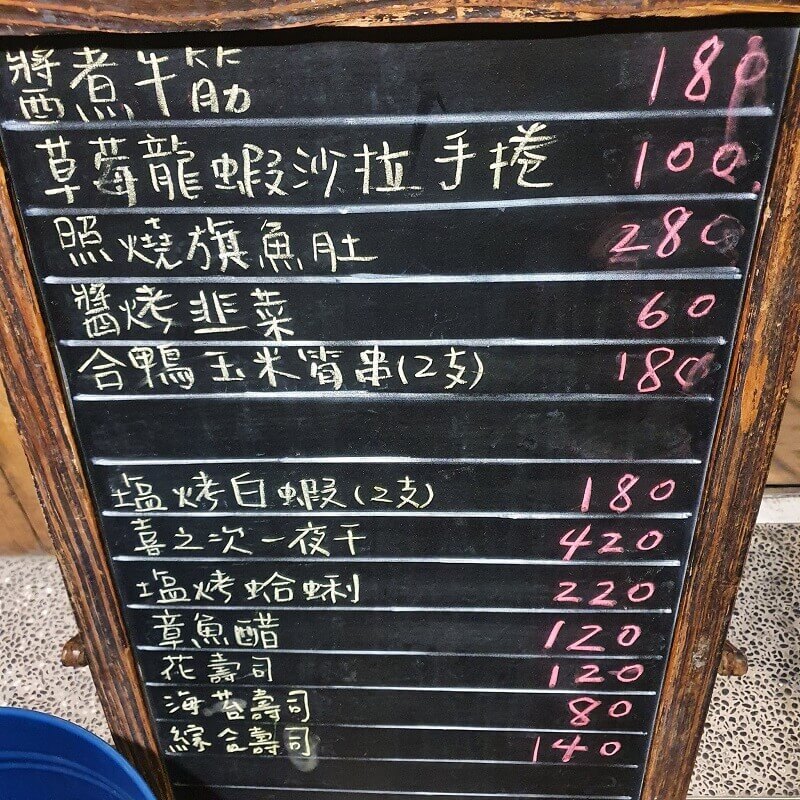 醬煮牛筋 180
草莓龍蝦沙拉手捲 100
照燒旗魚肚 280
醬烤韭菜 60
合鴨玉米筍串(2支) 180
塩烤白蝦(2支) 180
喜之次一夜干 420
塩烤蛤蜊 220
章魚醋 120
花壽司 120
海苔壽司 80
綜合壽司 140